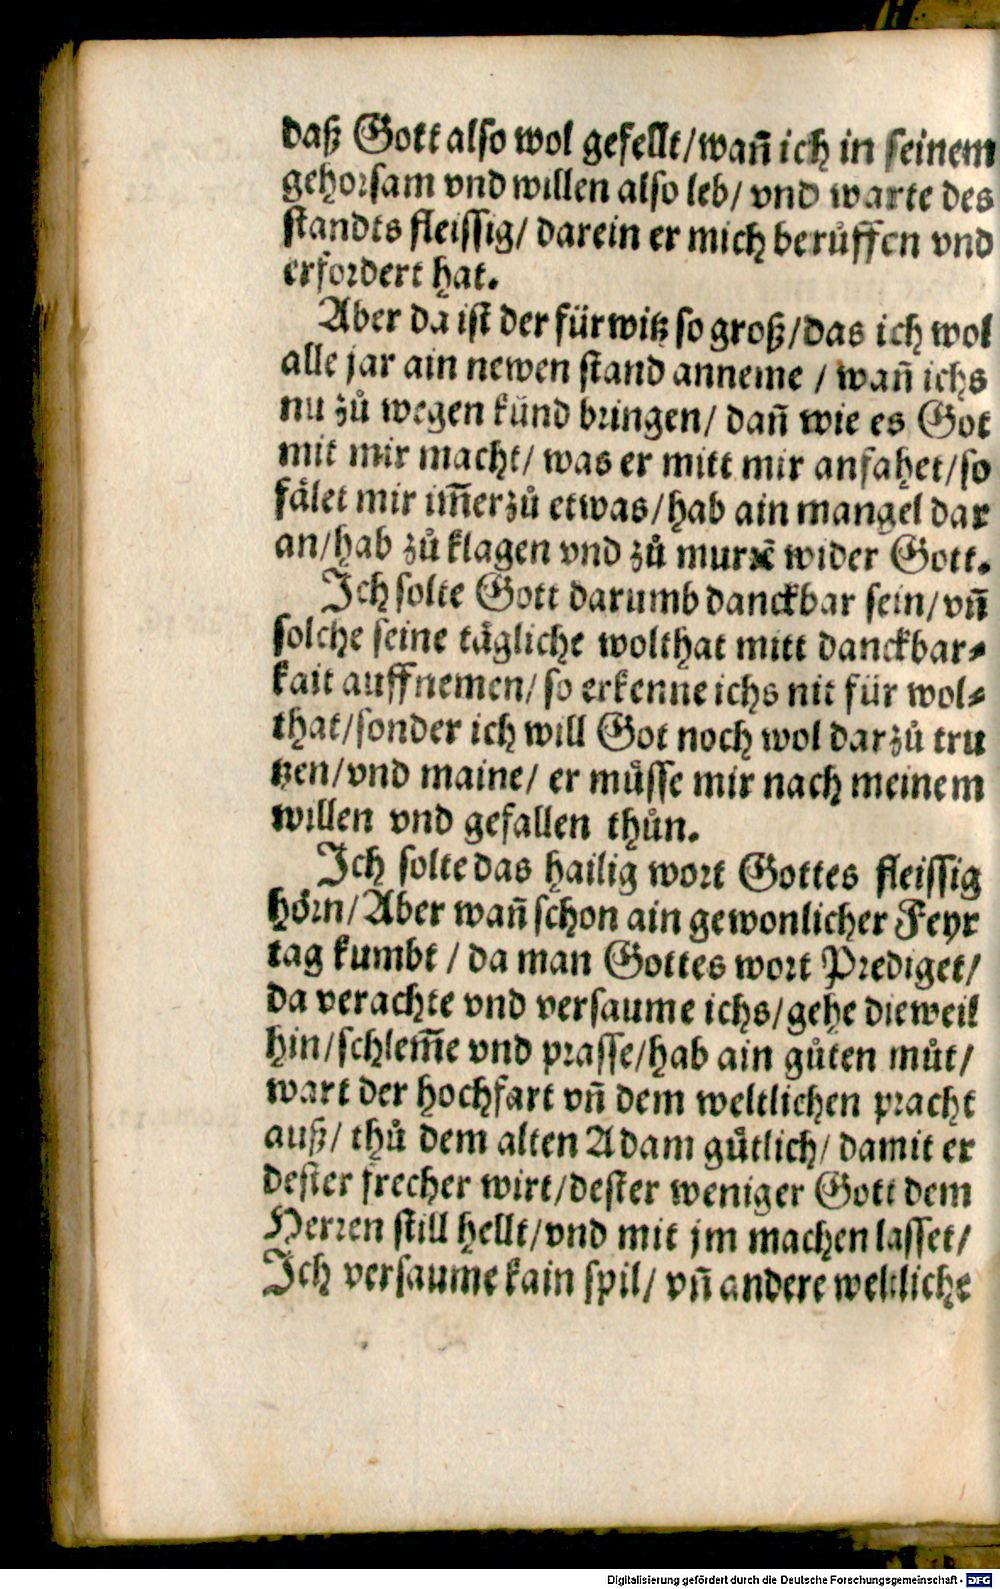 daß Gott also wol gefellt/wañ ich in seinem
gehorsam vnd willen also leb/ vnd warte des
standts fleissig/ darein er mich berůffen vnd
erfordert hat.
Aber da ist der fürwitz so groß/das ich wol
alle jar ain newen stand anneme / wañ ichs
nu zů wegen künd bringen/ dañ wie es Got
mit mir macht/ was er mitt mir anfahet/so
fälet mir im̃erzů etwas/hab ain mangel dar
an/hab zů klagen vnd zů murrẽ wider Gott.
Ich solte Gott darumb danckbar sein/ vñ
solche seine tägliche wolthat mitt danckbar⸗
kait auffnemen/ so erkenne ichs nit für wol⸗
that/sonder ich will Got noch wol darzů tru
tzen/vnd maine/ er můsse mir nach meinem
willen vnd gefallen thůn.
Ich solte das hailig wort Gottes fleissig
hörn/Aber wañ schon ain gewonlicher Feyr
tag kumbt / da man Gottes wort Prediget/
da verachte vnd versaume ichs/gehe dieweil
hin/schlem̃e vnd prasse/hab ain gůten můt/
wart der hochfart vñ dem weltlichen pracht
auß/ thů dem alten Adam gůtlich/ damit er
dester frecher wirt/dester weniger Gott dem
Herren still hellt/vnd mit jm machen lasset/
Ich versaume kain spil/ vñ andere weltliche
Digitalisierung gefördert durch die Deutsche Forschungsgemeinschaft - DFG